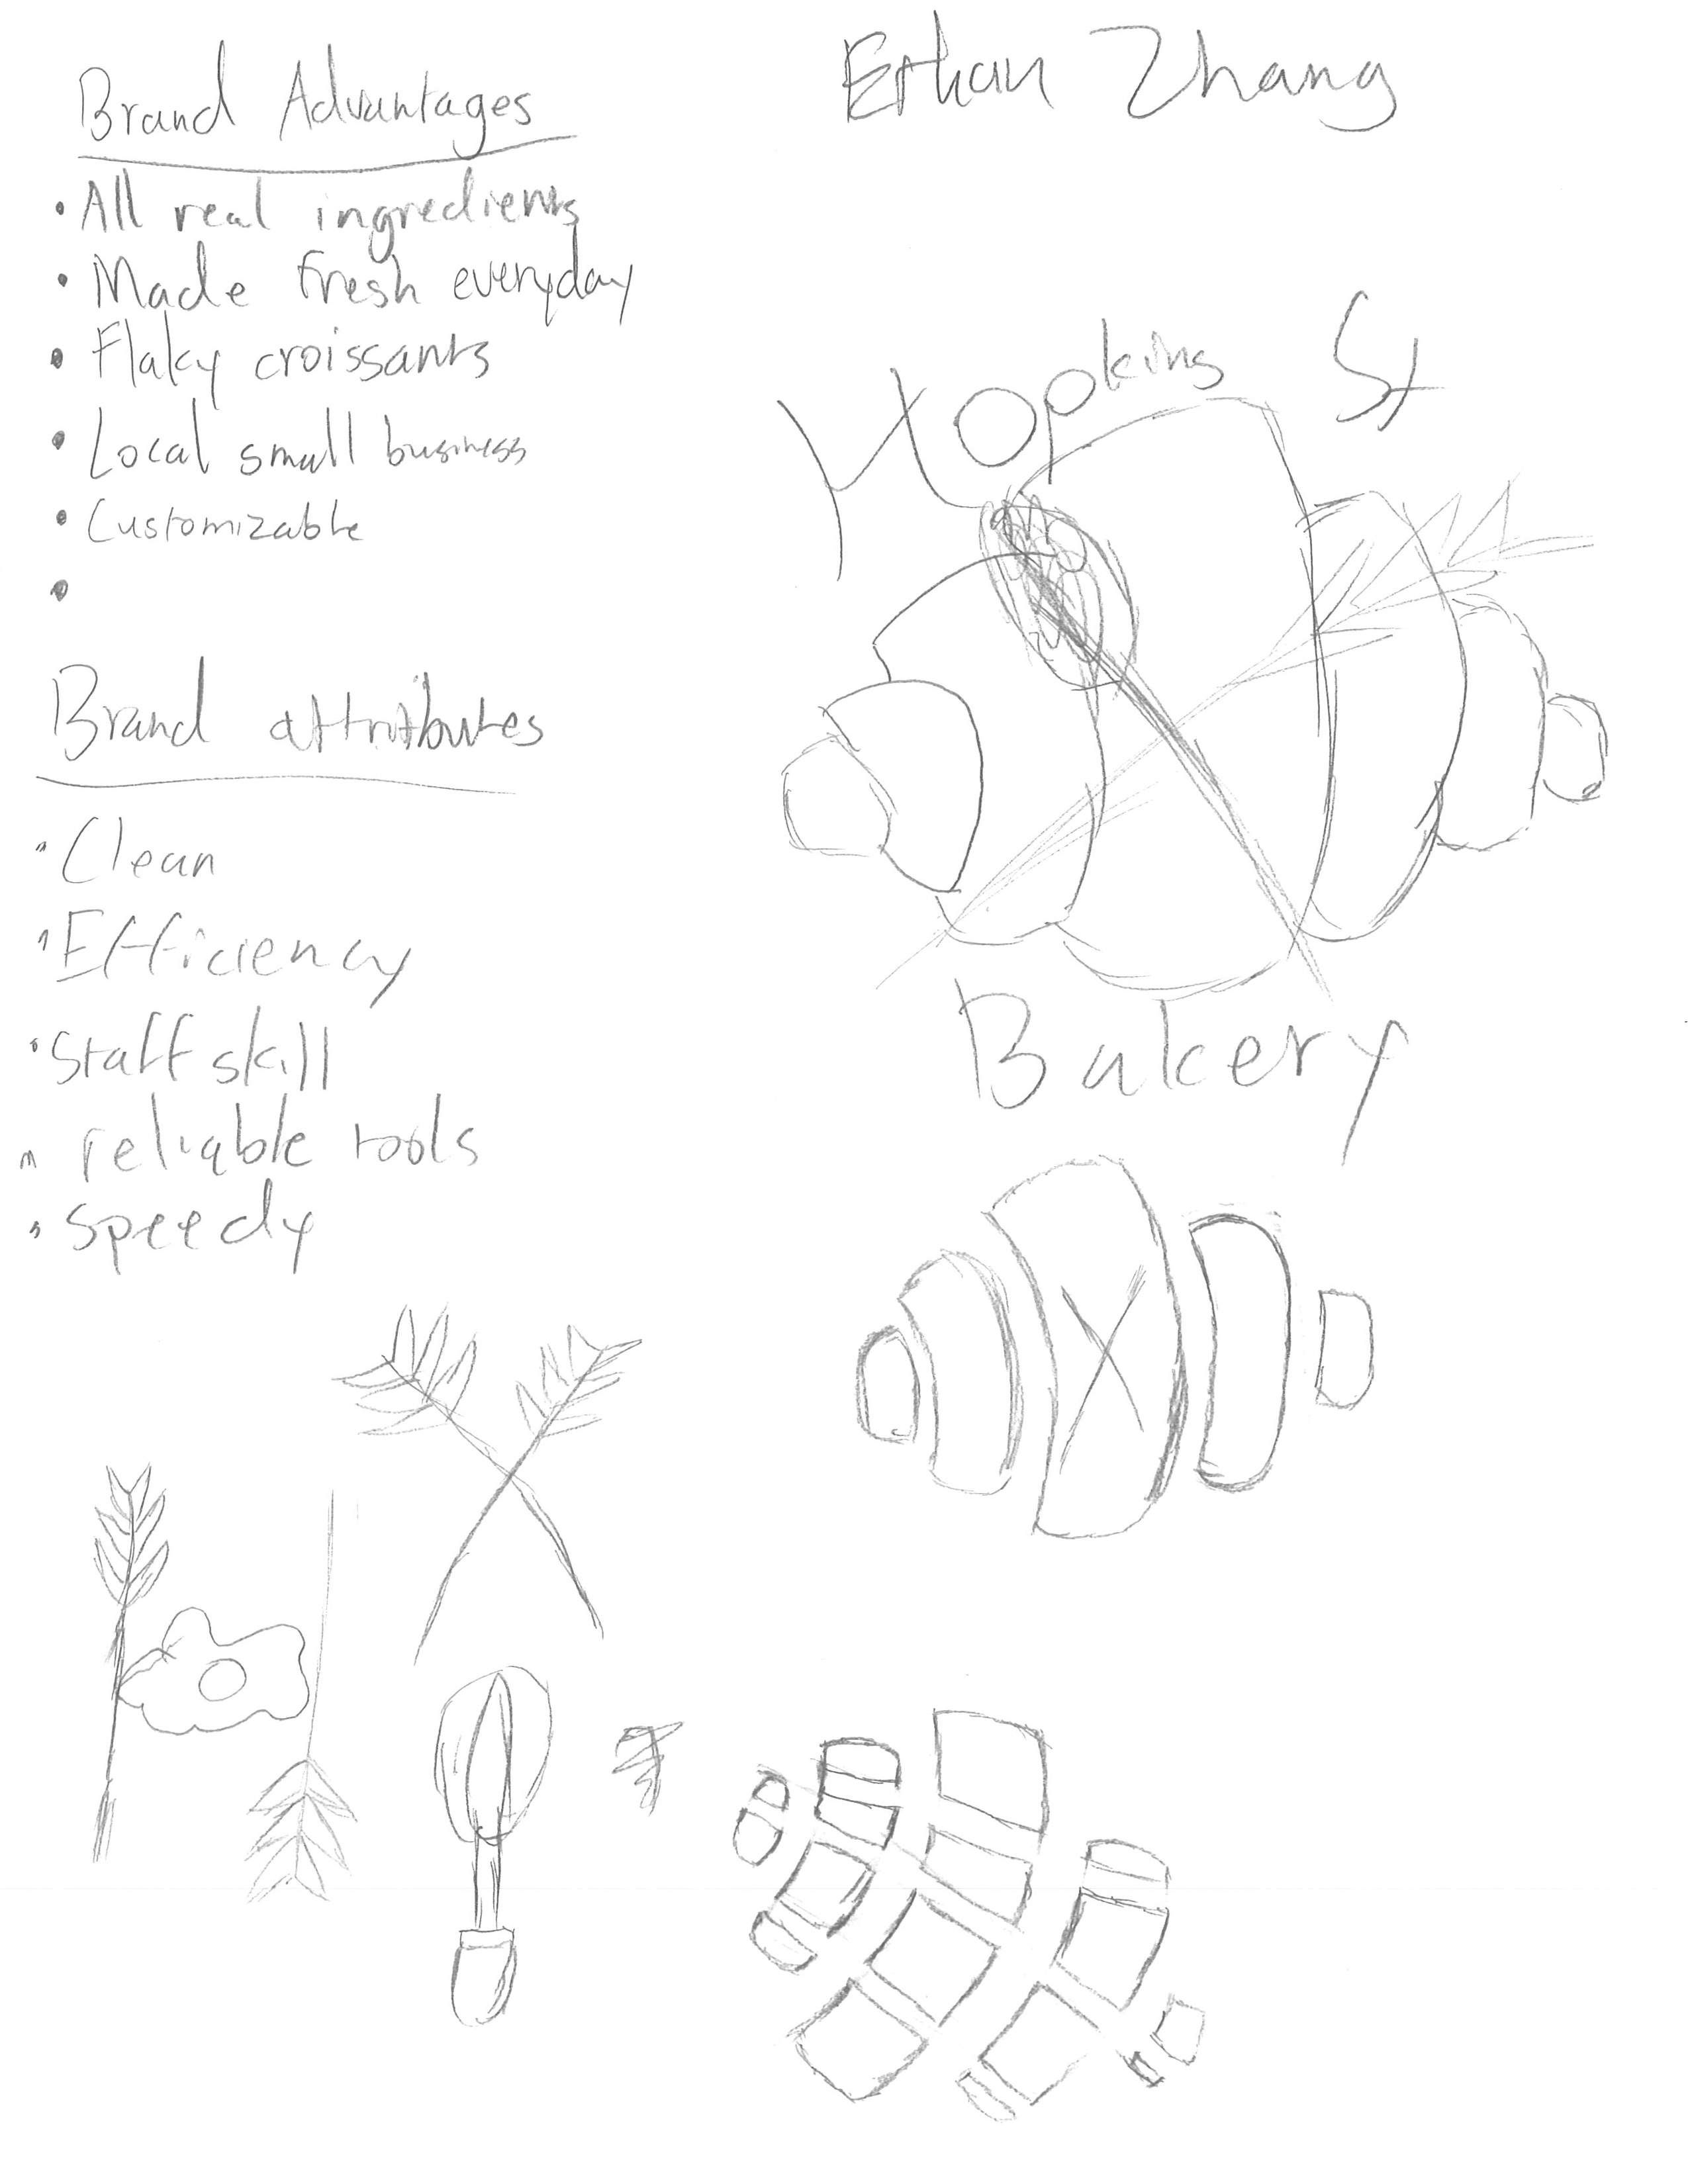 Brand Advantages
• All real ingredients
• Made fresh everyday
• Flaky croissants
• Local small business
• Customizable
•
Brand attributes
• Clean
• Efficiency
• Staff skill
• reliable tools
• speedy
Ethan Zhang
Hopkins St
Bakery